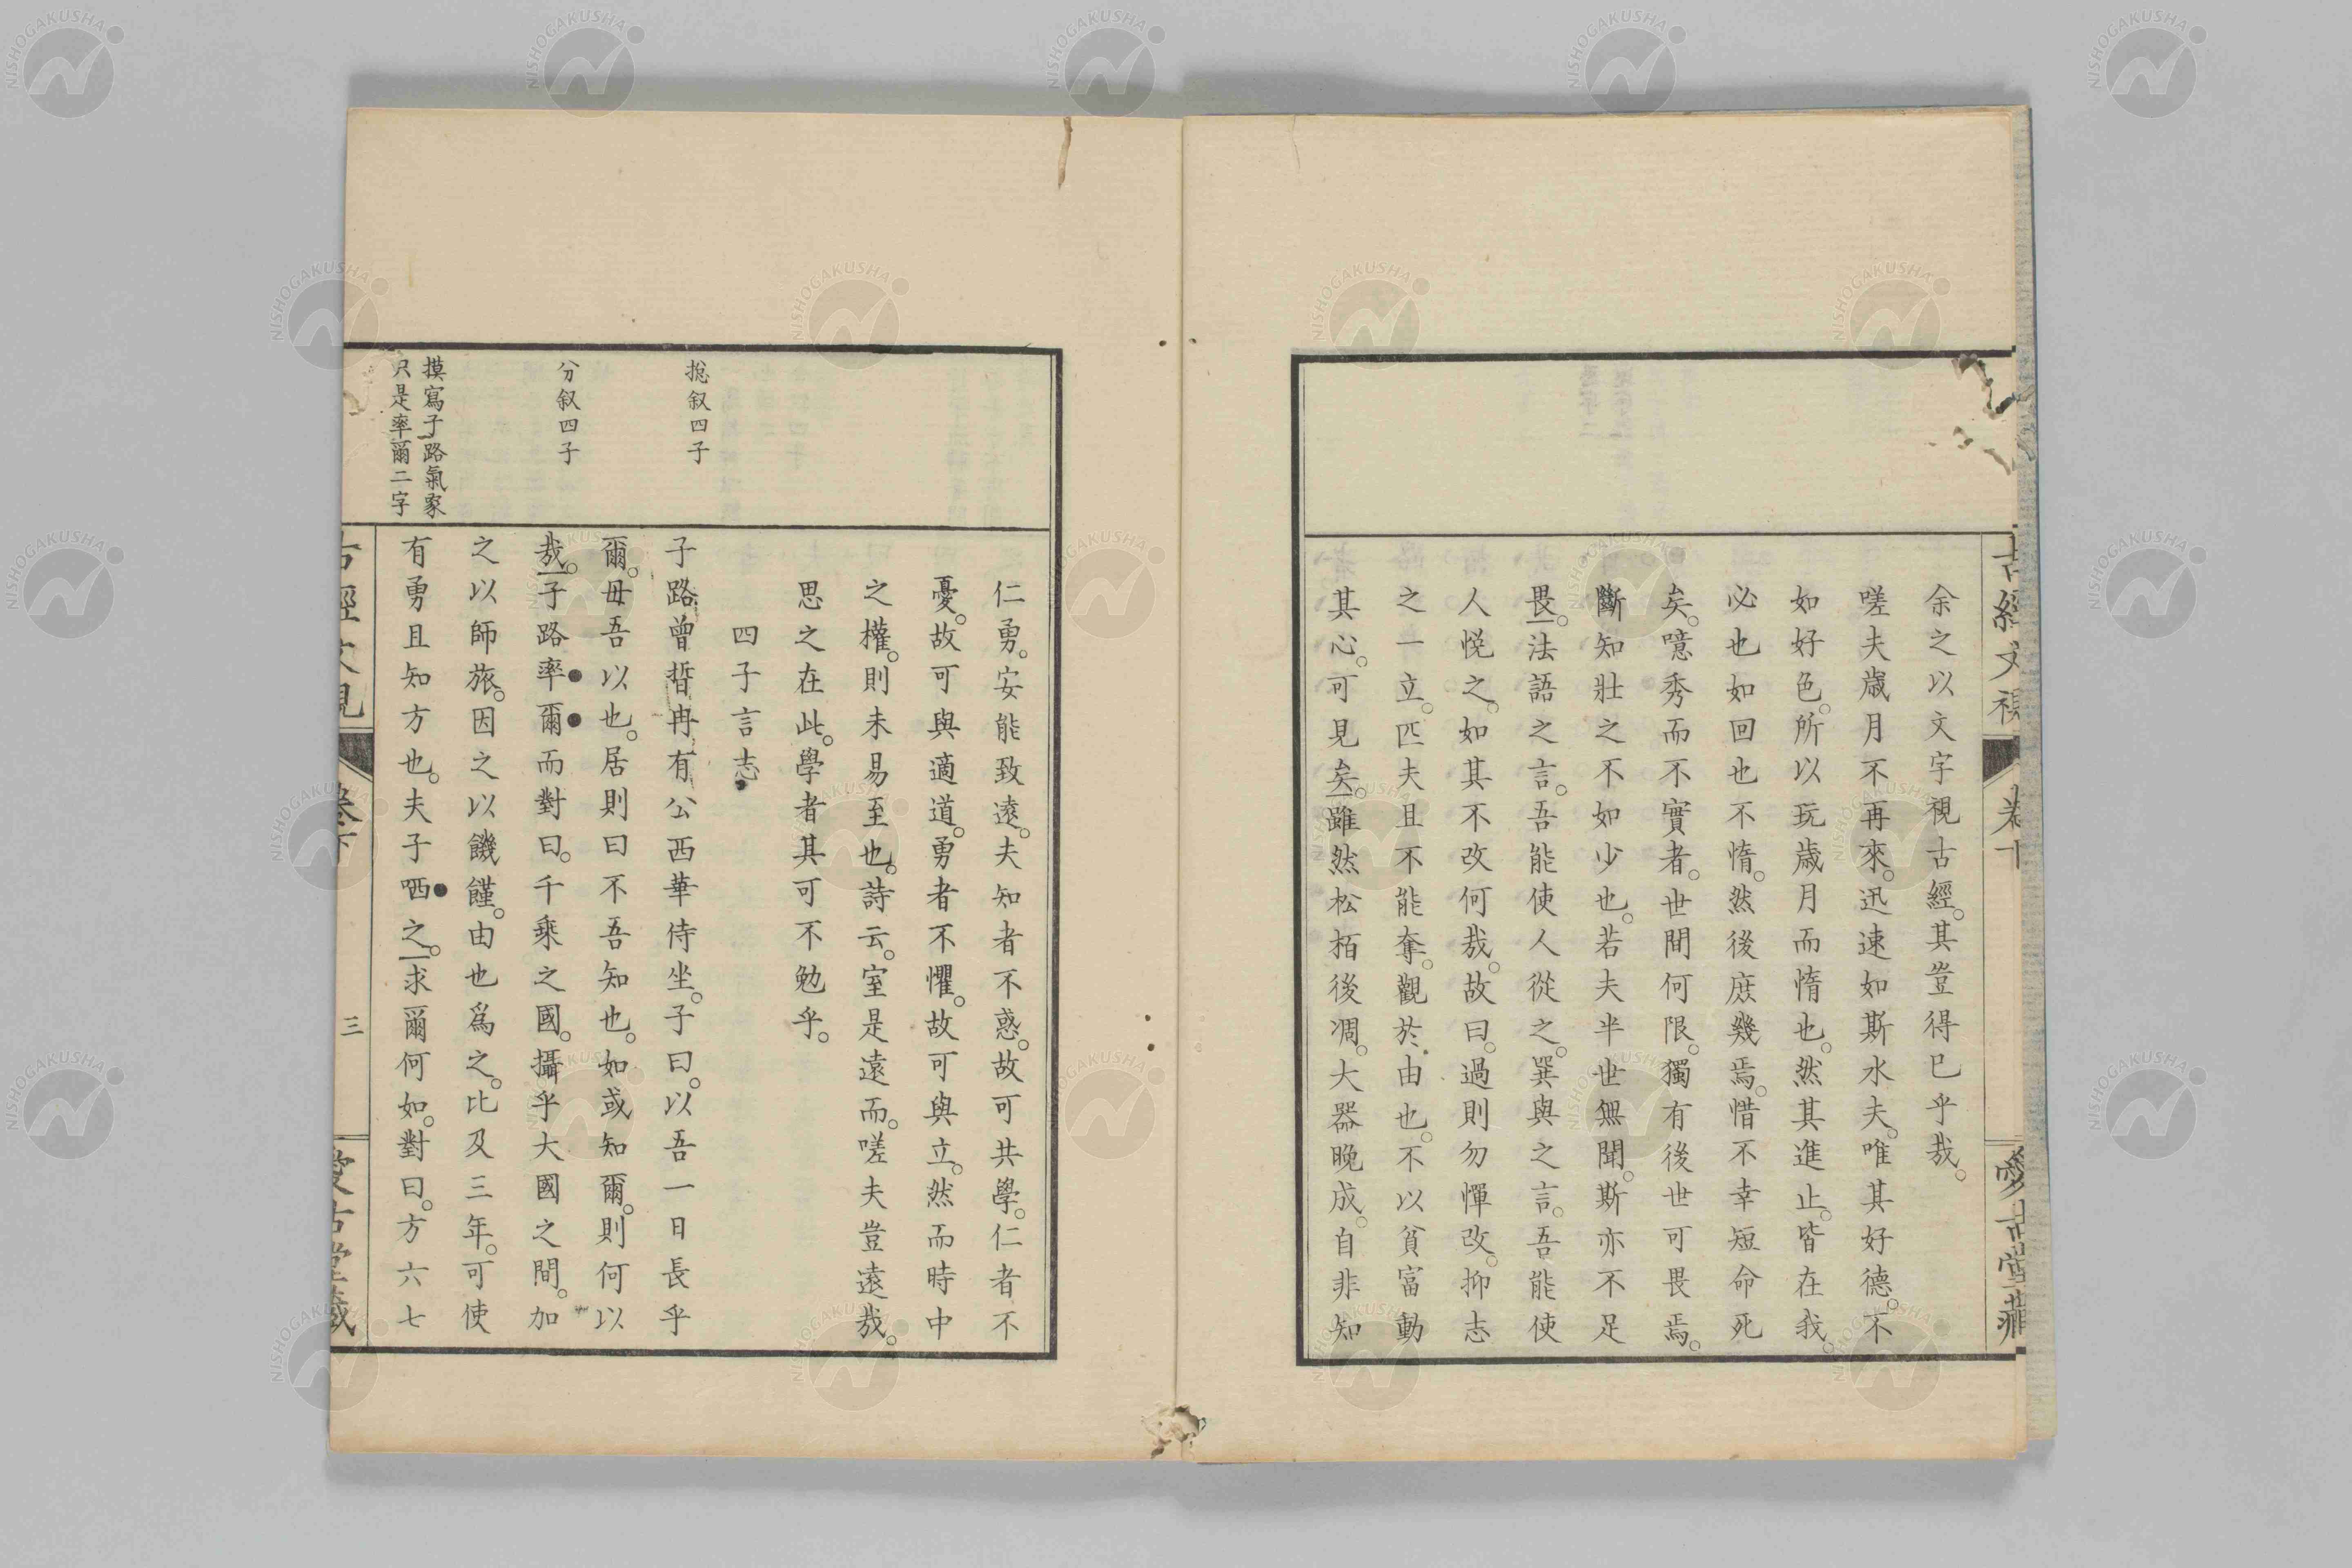 余之以文字視古經。其豈得已乎哉。
嗟夫歲月不再來。迅速如斯水夫。唯其好德。不
如好色。所以玩歲月而惰也。然其進止。皆在我。
必也如回也不惰。然後庶幾焉。惜不幸短命死
矣。噫秀而不實者。世間何限。獨有後世可畏焉。
斷知壯之不如少也。若夫半世無聞。斯亦不足
畏。法語之言。吾能使人從之。巽與之言。吾能使
人悅之。如其不改何哉。故曰。過則勿憚改。抑志
之一立。匹夫且不能奪。觀於由也。不以貧富動
其心。可見矣。雖然松栢後凋。大器晚成。自非知
仁勇。安能致遠。夫知者不惑。故可共學。仁者不
憂。故可與適道。勇者不懼。故可與立。然而時中
之權。則未易至也。詩云。室是遠而。嗟夫豈遠哉。
思之在此。學者其可不勉乎。
四子言志
揔叙四子
子路曾晳冉有公西華侍坐。子曰。以吾一日長乎
爾。毋吾以也。居則曰不吾知也。如或知爾。則何以
分叙四子
哉。子路率爾而對曰。千乘之國。攝乎大國之間。加
之以師旅。因之以饑饉。由也爲之。比及三年。可使
摸寫子路氣象
只是率爾二字
有勇且知方也。夫子哂之。求爾何如。對曰。方六七
古經文視
卷下
三
愛古堂藏